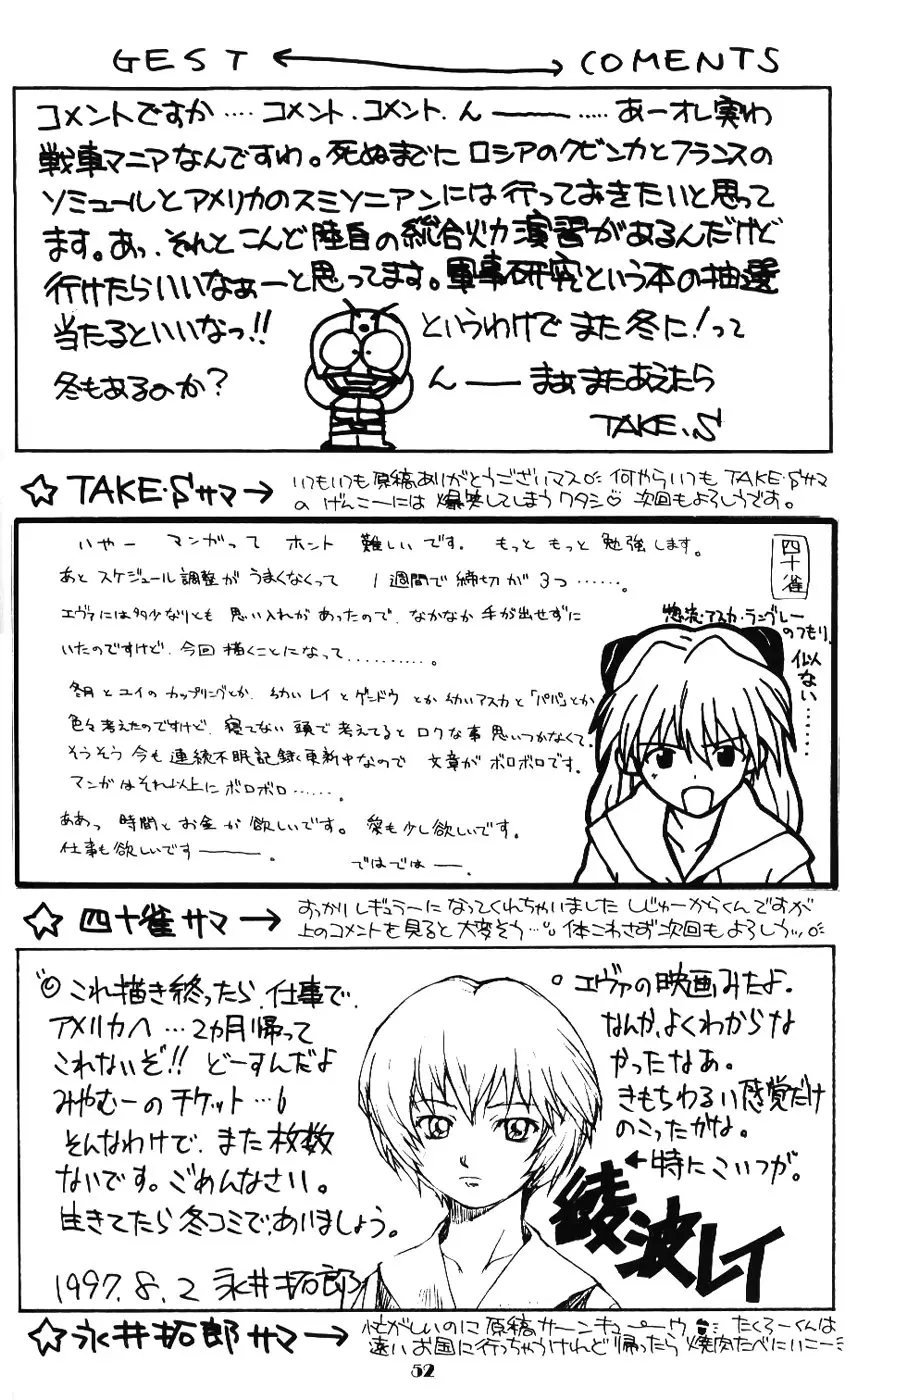 GEST ←→ COMENTS
コメントですか…. コメント.コメント.んー …..あーオレ実わ
戦車マニアなんですわ。死ぬまでに ロシアのクビンカとフランスの
ソミュールとアメリカのスミソニアンには行っておきたいと思って
ます。あっ.それと こんど 陸自の総合火力演習があるんだけど
行けたらいいなぁーと思ってます。軍事研究という本の抽選
当たるといいなっ!!
冬もあるのか?
というわけで また冬に!って
んー まぁまたあえたら
TAKE.S
☆ TAKE・Sサマ→
いつもいつも原稿ありがとうございマス 何やらいつも TAKE・Sサマ
の げんこーには 爆笑してしまう ワタシ♡ 次回もよろしうです。
いやー マンガって ホント 難しいです. もっと もっと 勉強します。
あと スケジュール調整が うまくなくって 1週間で締切が 3つ…….
エヴァには多少なりとも 思い入れが あったので、なかなか 手が出せずに
いたのですけど、今回 描くことになって………..。
冬月とユイのカップリングとか. 幼いレイとゲンドウ とか 幼いアスカと「パパ」とか
色々考えたのですけど、寝てない頭で考えてると ロクな事 思いつかなくて.
そうそう 今も 連続不眠記録更新中なので 文章が ボロボロです.
マンガはそれ以上に ボロボロ……。
ああっ 時間と お金が 欲しいです。 愛も少し欲しいです.
仕事も欲しいですー.
ではではー.
四十雀
惣流・アスカ・ラングレー
のつもり.
似ない……
☆ 四十雀サマ→
すっかりレギュラーになってくれちゃいました しじゅーからくんですが
上のコメントを見ると 大変そう… 体こわさず次回もよろしう…
◎これ描き終ったら.仕事で.
アメリカへ …2カ月帰って
これないぞ!! どーすんだよ
みやむーのチケット…
そんなわけで、また枚数
ないです。ごめんなさい。
生きてたら冬コミで、あいましょう。
1997.8.2 永井拓郎
○エヴァの映画みたよ.
なんか、よくわからな
かったなあ。
きもちわるい感覚だけ
のこったかな。
←特にこいつが。
綾波レイ
☆永井拓郎サマ→
忙がしいのに 原稿サーンキューウ たくろーくんは
遠いお国に行っちゃうけれど 帰ったら 焼肉たべにいこー
52